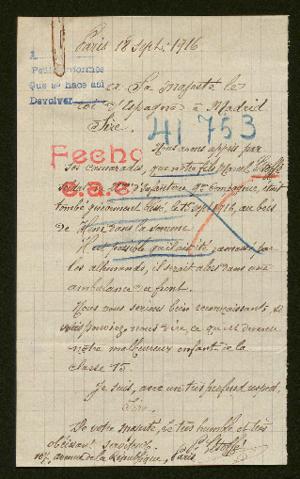 Paris 18 Sept. 1916
A
Que se hace así
Devolver
a Sa Majesté le
Roi d'Espagne à Madrid
Sire,
41753
Nous avons appris par
Fecha
ses camarades, que notre fils Marcel
soldat d'Infanterie Compagnie, était
tombé grièvement blessé, le 15 sept 1916, au bois
de dans la Somme
Il est possible qu'il ait été ramassé par
les allemands, il serait alors dans une
ambulance du front.
Nous vous serions bien reconnaissants, si
vous pouviez nous dire ce qu'est devenu
notre malheureux enfant de la
classe 15.
Je suis, avec un très profond respect,
Sire,
De votre majesté, le très humble et très
obéissant serviteur,
avenue de la République, Paris